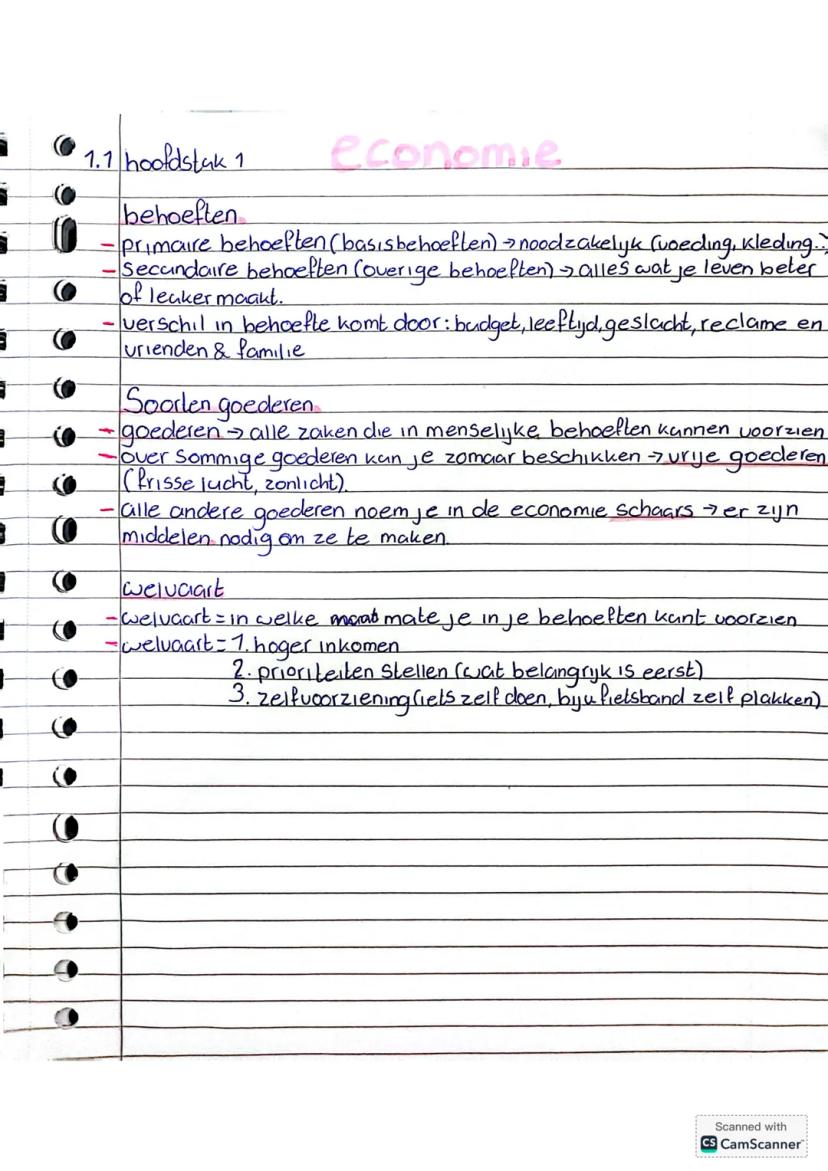 economie
1.1 hoofdstuk 1
behoeften
- primaire behoeften (basisbehoeften) → noodzakelijk (voeding, kleding..)
- Secundaire behoeften (overige behoeften) → alles wat je leven beter
of leuker maakt.
- verschil in behoefte komt door: budget, leeftijd, geslacht, reclame en
vrienden & familie
Soorten goederen
- goederen → alle zaken die in menselijke behoeften kunnen voorzien
- over sommige goederen kun je zomaar beschikken → vrije goederen
(frisse lucht, zonlicht)
- alle andere goederen noem je in de economie schaars → er zijn
middelen nodig om ze te maken.
welvaart
- welvaart = in welke mate je in je behoeften kunt voorzien
- welvaart = 1. hoger inkomen
2. prioriteiten stellen (wat belangrijk is eerst)
3. zelfvoorziening (iets zelf doen, bijv fietsband zelf plakken)
Scanned with
CS CamScanner